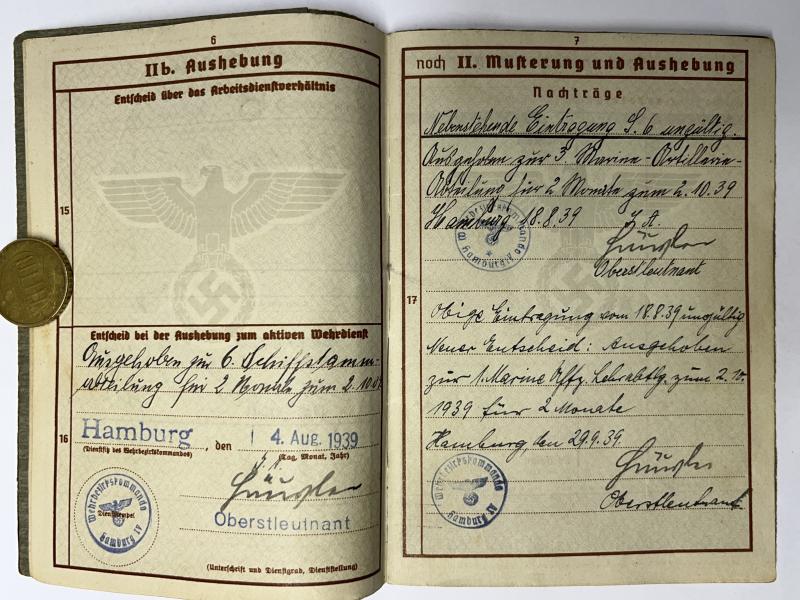 6
IIb. Aushebung
Entscheid über das Arbeitsdienstverhältnis
15
Entscheid bei der Aushebung zum aktiven Wehrdienst
Ausgehoben zu 6. Schiffsstamm-
abteilung für 2 Monate zum 2.10.
16
Hamburg, den 4. Aug. 1939
(Dienstsitz des Wehrbezirkskommandos)
(Tag, Monat, Jahr)
I. A.
Oberstleutnant
Dienststempel
Wehrbezirkskommando
Hamburg IV
(Unterschrift und Dienstgrad, Dienststellung)
7
noch II. Musterung und Aushebung
Nachträge
Nebenstehende Eintragung S. 6 ungültig.
Ausgehoben zur 3. Marine-Artillerie-
Abteilung für 2 Monate zum 2.10.39
Hamburg 18.8.39 I. A.
Wehrbezirkskommando
Hamburg IV
Oberstleutnant
17
Obige Eintragung vom 18.8.39 ungültig
Neuer Entscheid: Ausgehoben
zur 1. Marine Lehrabtlg. zum 2.10.
1939 für 2 Monate
Hamburg, den 29.9.39.
Wehrbezirkskommando
Hamburg IV
Oberstleutnant